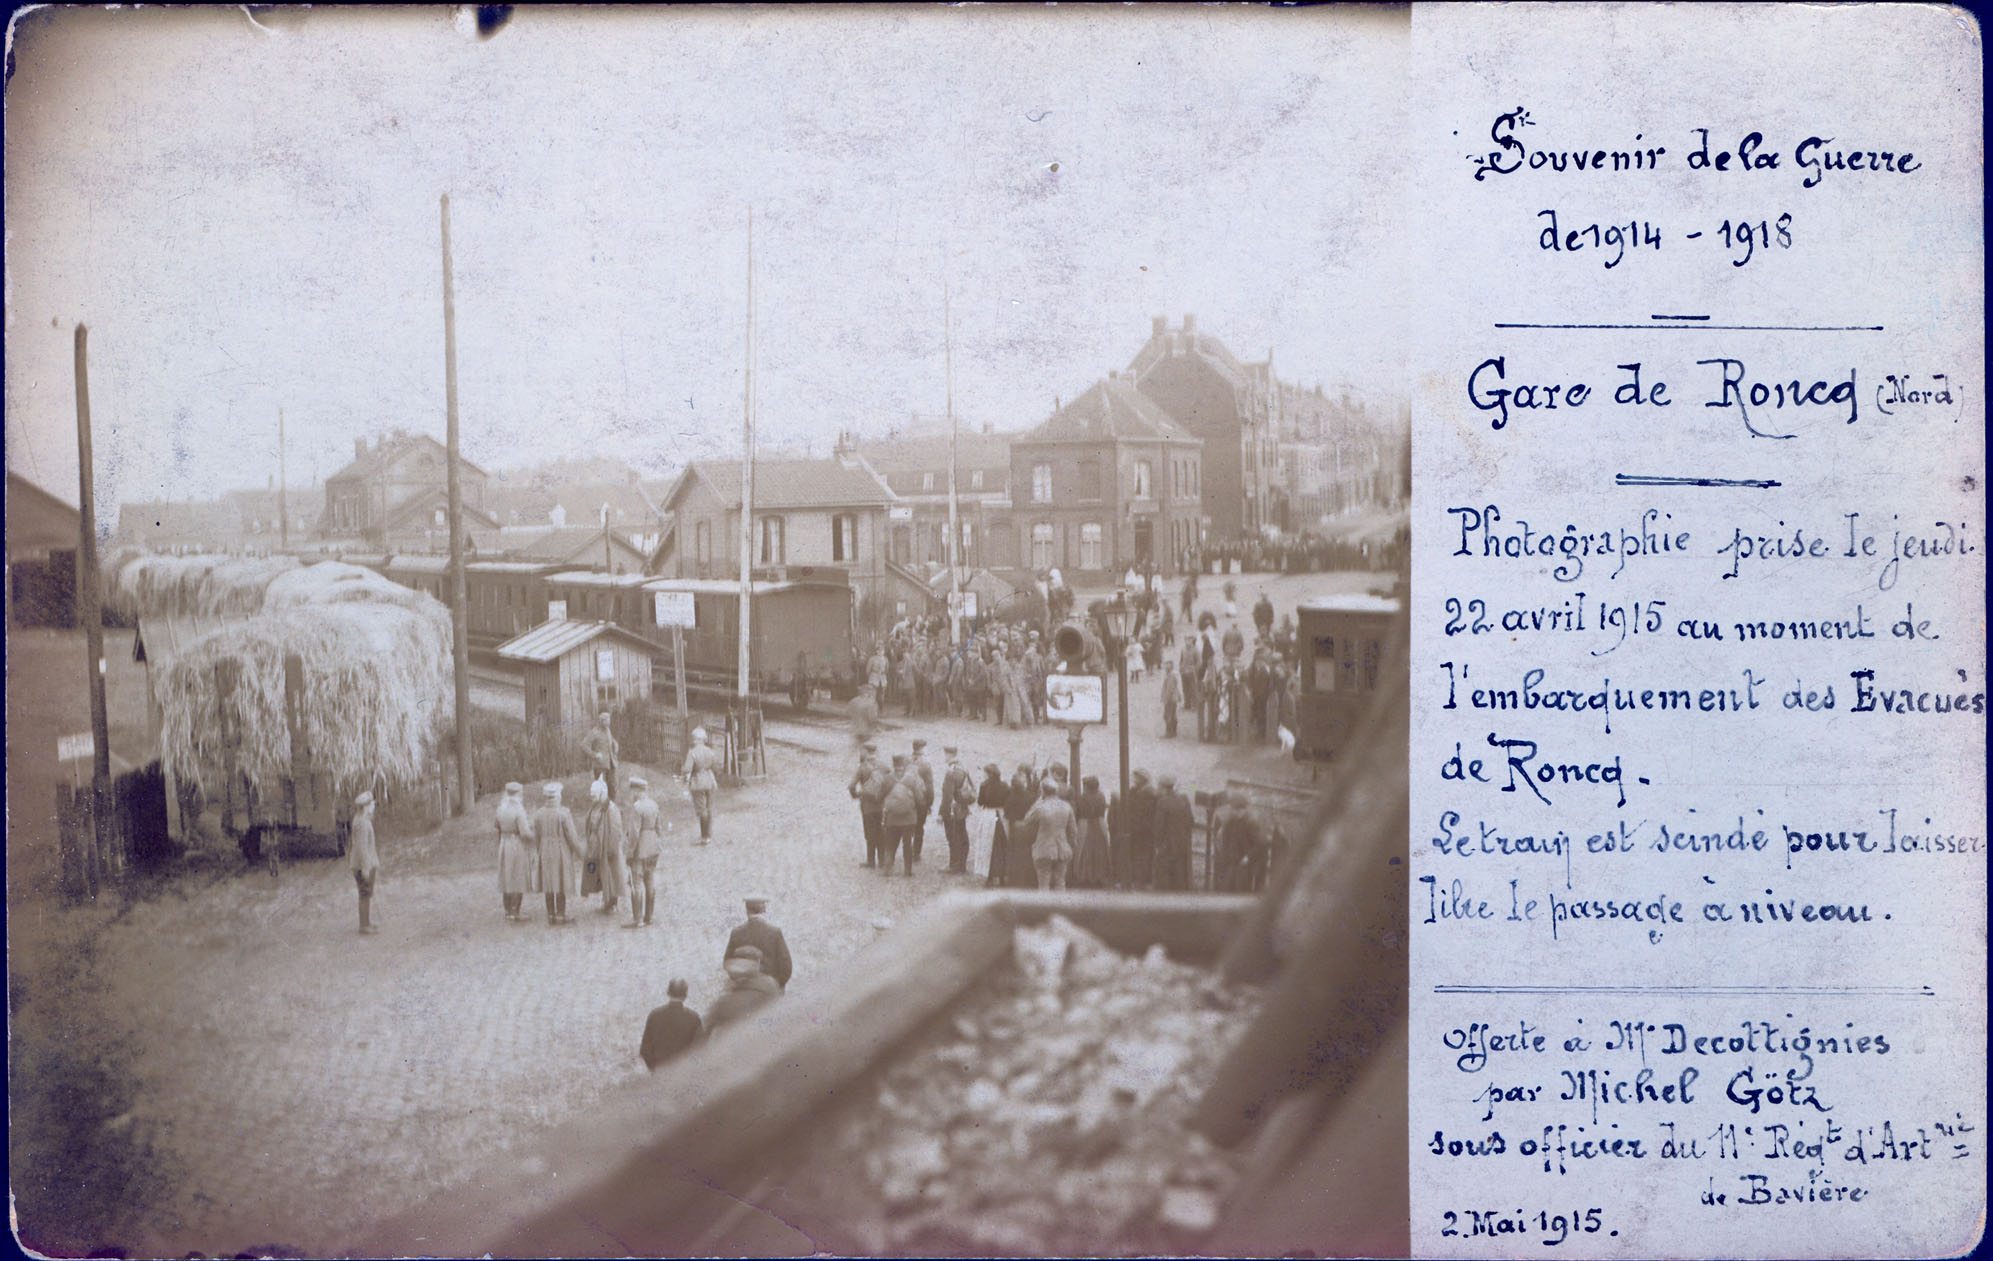 Souvenir de la Guerre
de 1914 - 1918
Gare de Roncq (Nord)
Photographie prise le jeudi
22 avril 1915 au moment de
l'embarquement des Evacués
de Roncq.
Le train est scindé pour laisser
libre le passage à niveau.
Offerte à Mr Decottignies
par Michel Götz
sous officier du 11e Régt d'Artrie
de Bavière
2 Mai 1915.